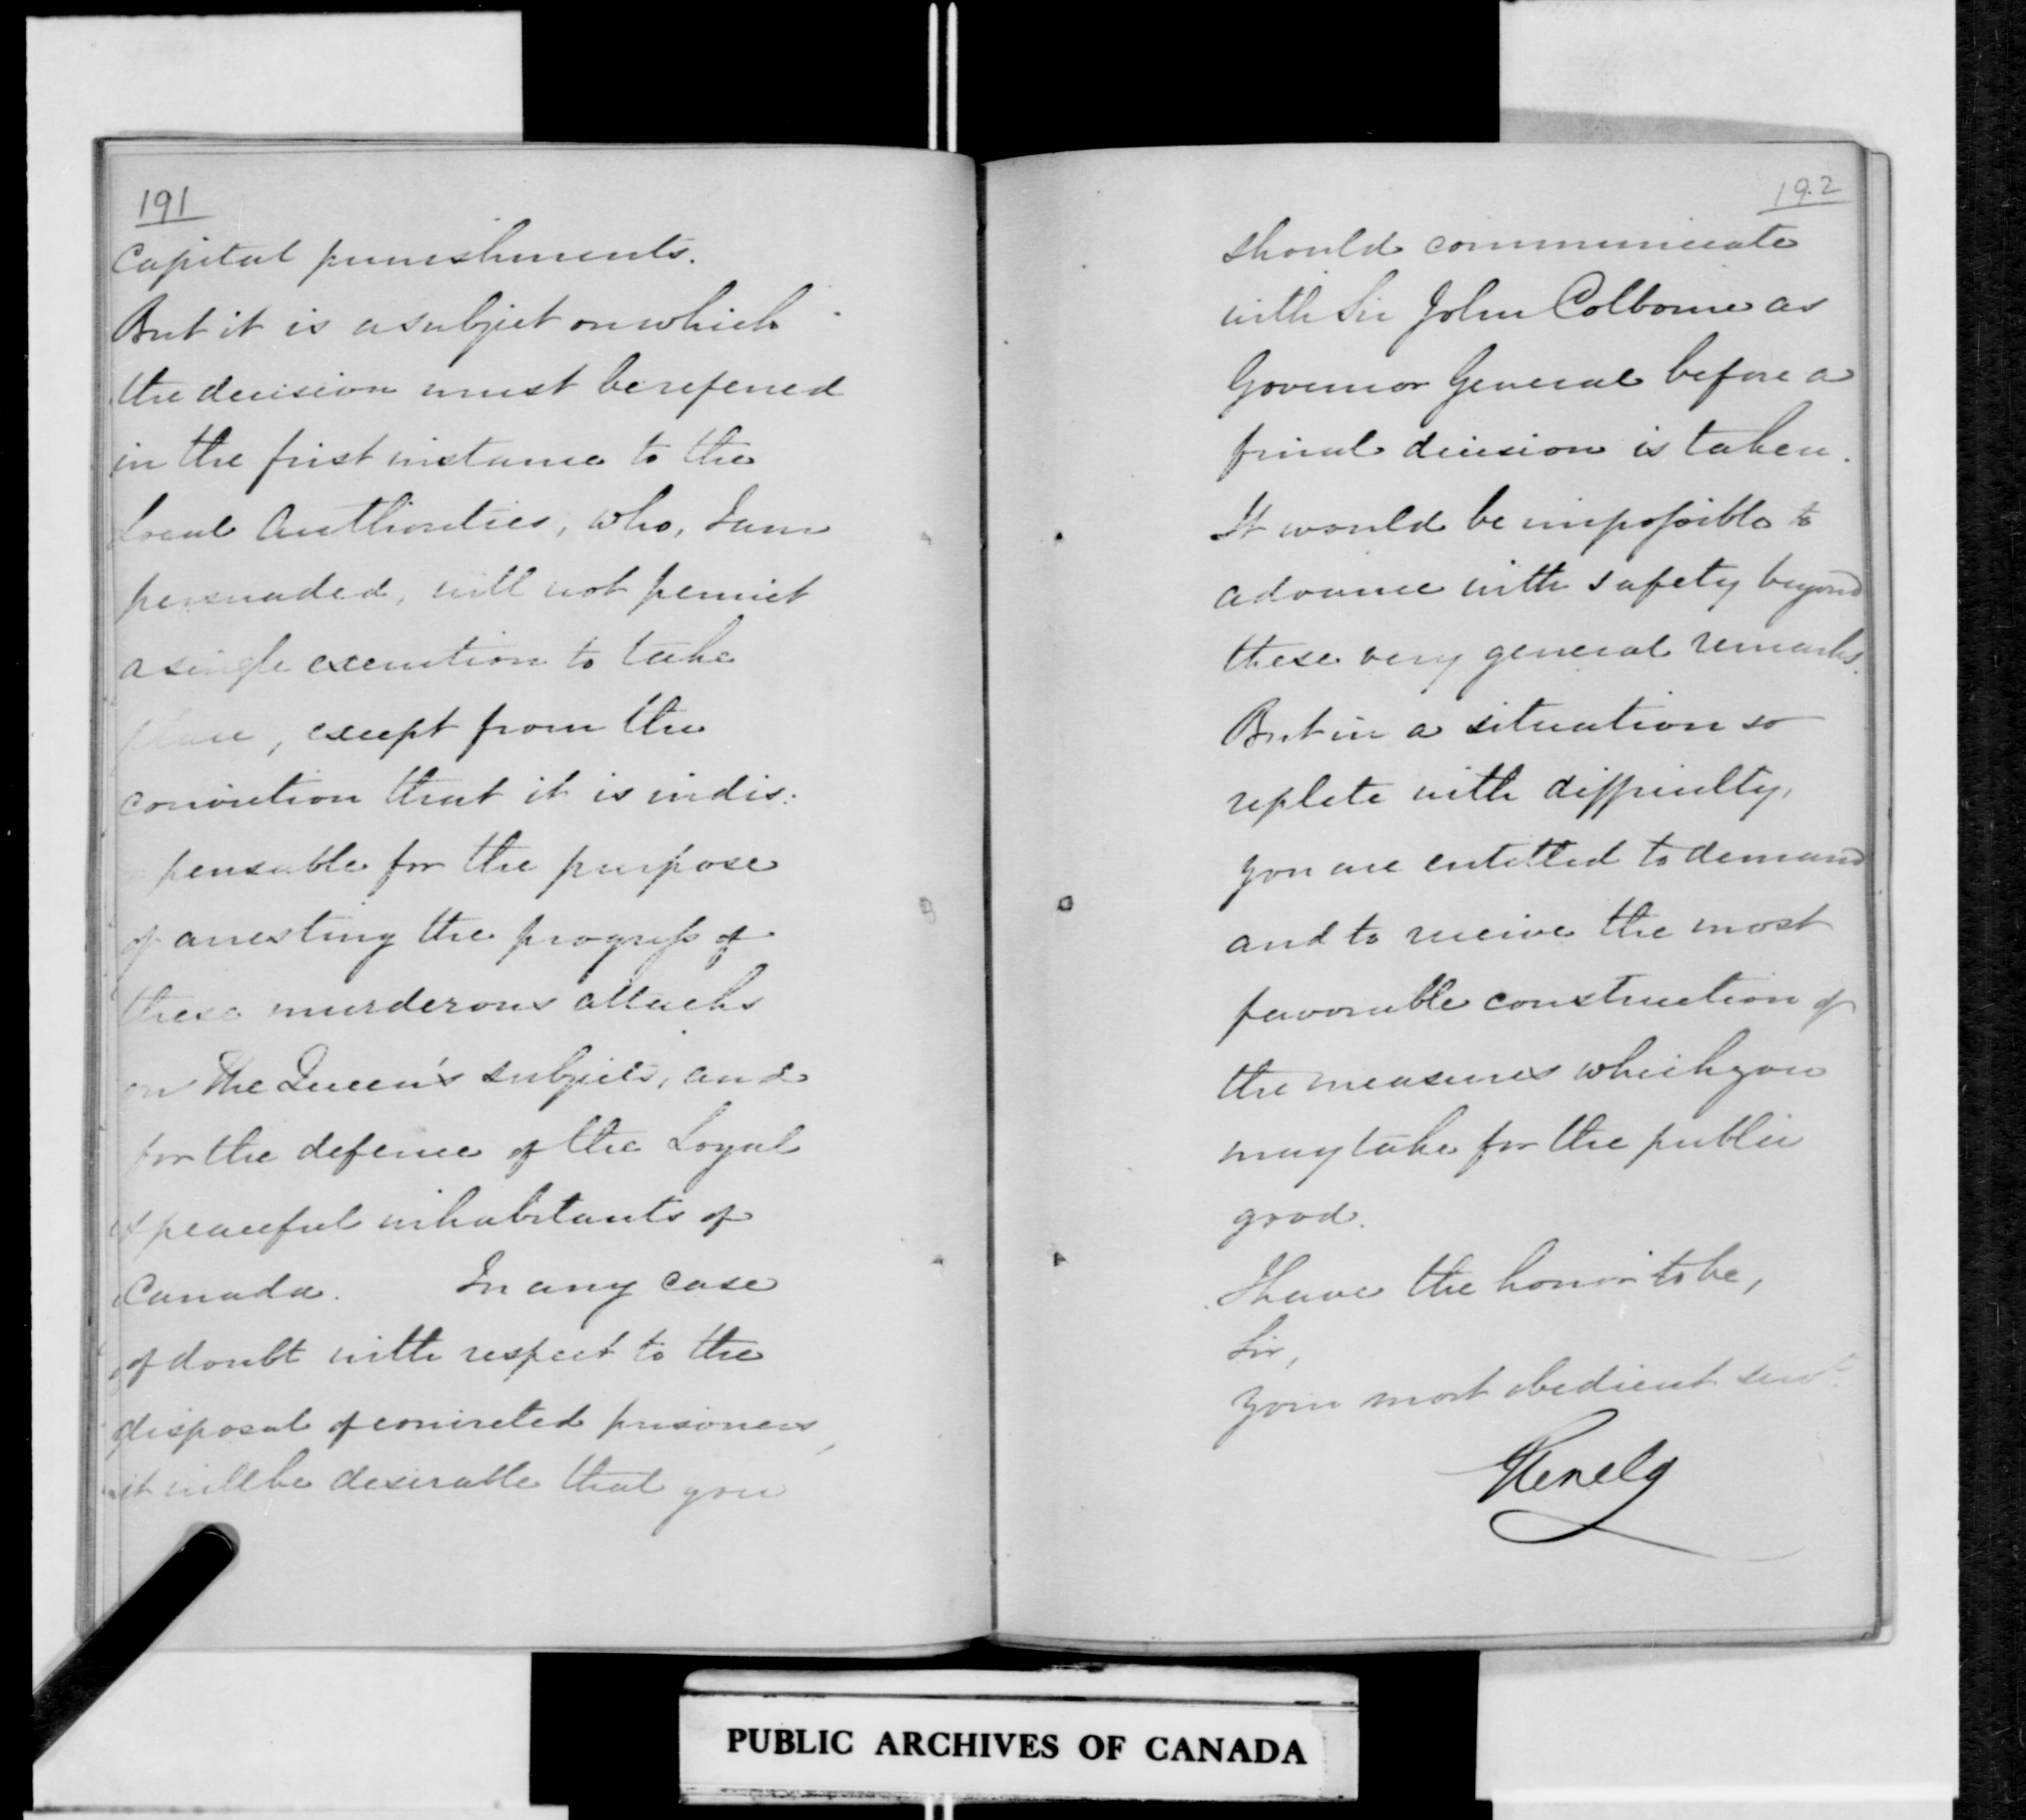 191
Capital punishments.
But it is a subject on which
the decision must be referred
in the first instance to the
Local Authorities, who, I am
persuaded, will not permit
a single execution to take
place, except from the
conviction that it is indis:
pensable for the purpose
of arresting the progress of
these murderous attacks
on The Queen's subjects, and
for the defence of the Loyal
& peaceful inhabitants of
Canada. In any case
of doubt with respect to the
disposal of convicted prisoners,
it will be desirable that you
192
should communicate
with Sir John Colborne as
Governor General before a
final decision is taken.
It would be impossible to
advance with safety beyond
these very general remarks.
But in a situation so
replete with difficulty,
you are entitled to demand
and to receive the most
favorable construction of
the measures which you
may take for the public
good.
I have the honor to be,
Sir,
Your most obedient servt.
Glenelg
PUBLIC ARCHIVES OF CANADA